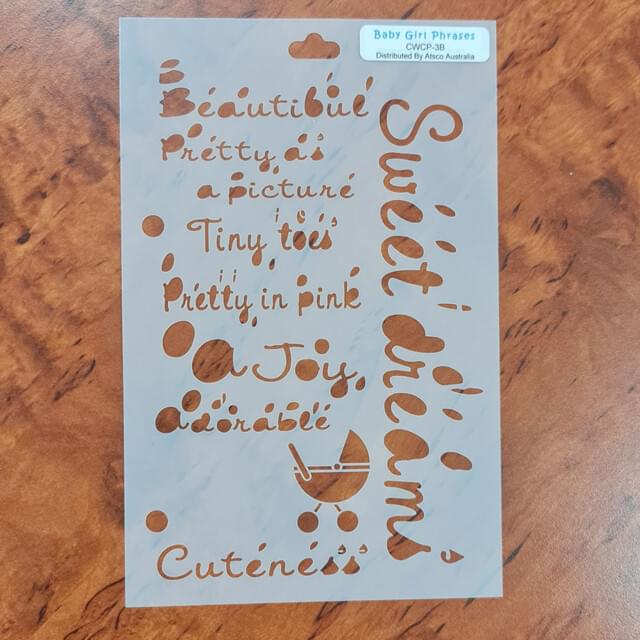 Baby Girl Phrases
CWCP-3B
Distributed By Atsco Australia
Beautibul
Pretty as
a picture
Tiny toes
Pretty in pink
a Joy,
adorable
Cuteness
Sweet dreams